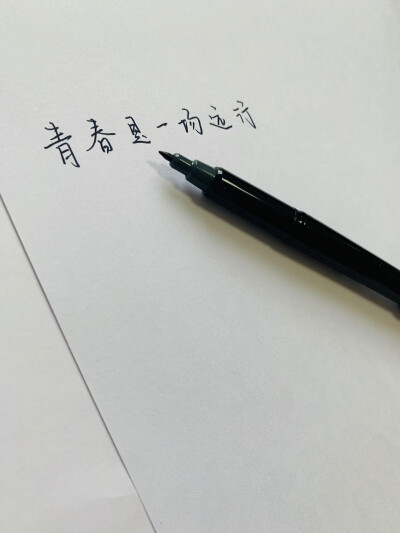 青春是一场远行